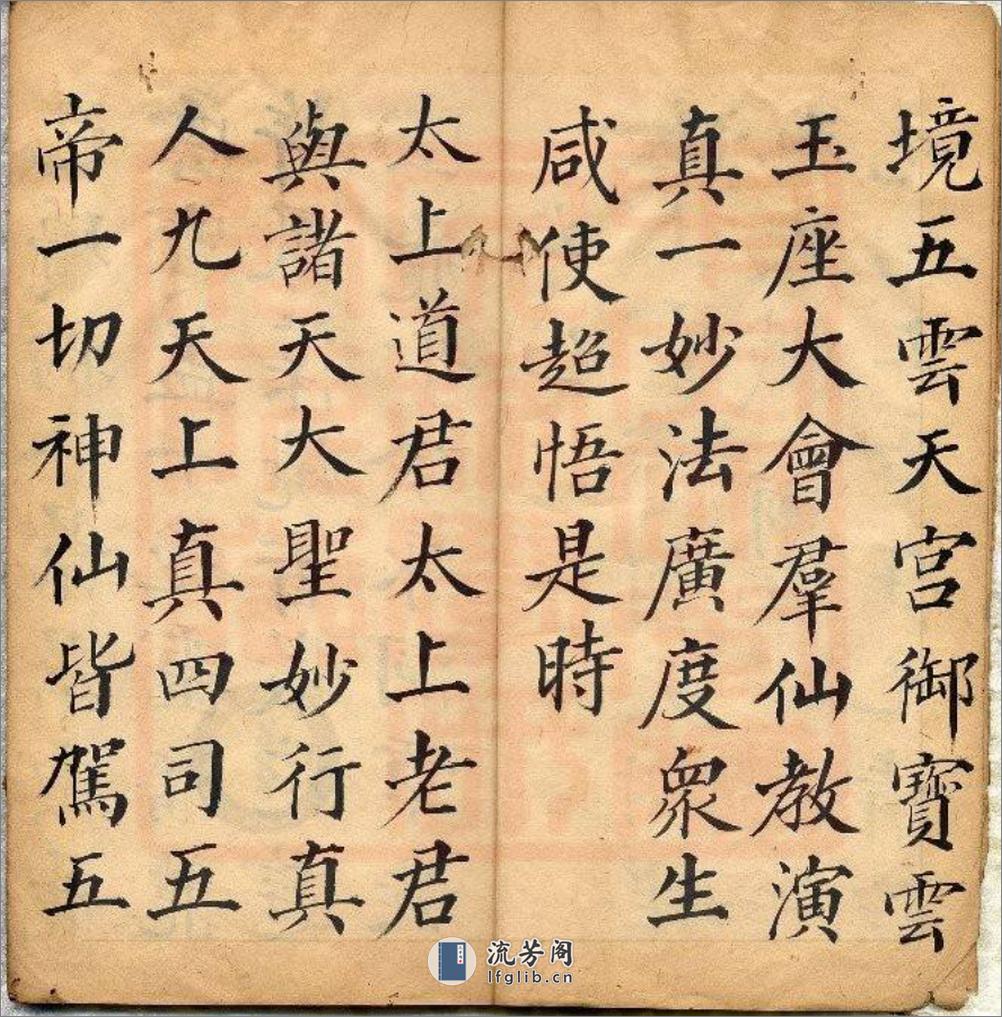 境五雲天宮御寶雲
玉座大會羣仙教演
真一妙法廣度眾生
咸使超悟是時
太上道君太上老君
與諸天大聖妙行真
人九天上真四司五
帝一切神仙皆駕五
流芳阁
lfglib.cn